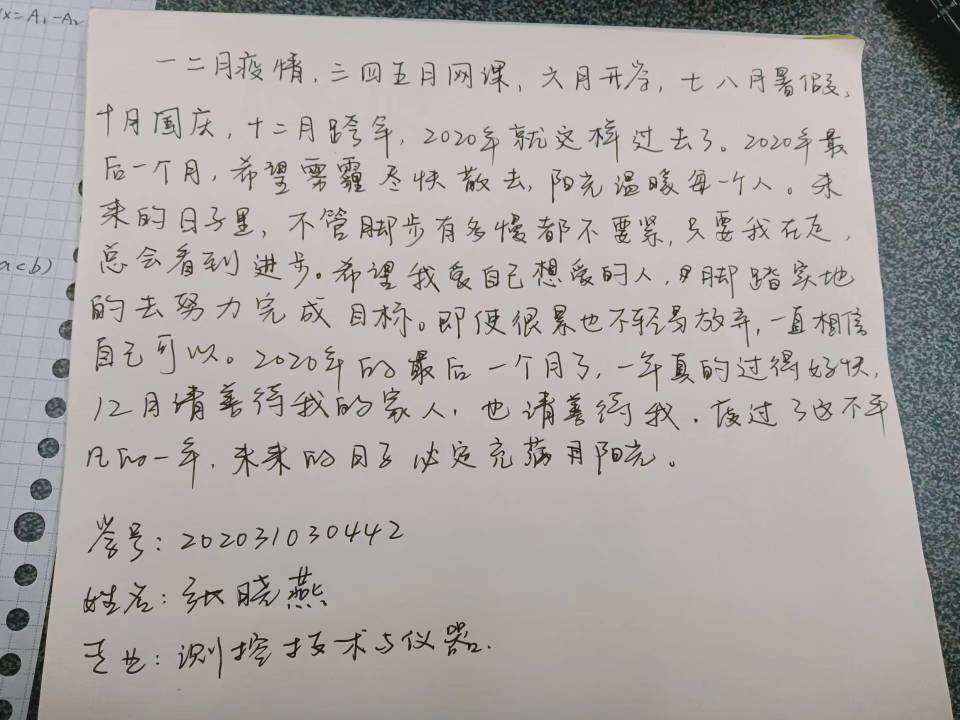 x=A₁-A₂
一二月疫情,三四五月网课,六月开学,七八月暑假,
十月国庆,十二月跨年,2020年就这样过去了。2020年最
后一个月,希望雾霾尽快散去,阳光温暖每一个人。未
来的日子里,不管脚步有多慢都不要紧,只要我在走,
总会看到进步。希望我爱自己想爱的人,脚踏实地
a<b)
的去努力完成目标。即使很累也不轻易放弃,一直相信
自己可以。2020年的最后一个月了,一年真的过得好快,
12月请善待我的家人,也请善待我。度过了这不平
凡的一年,未来的日子必定充满阳光。
学号:202031030442
姓名:张晓燕
专业:测控技术与仪器.